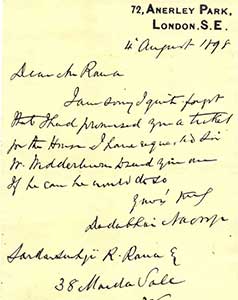 72, ANERLEY PARK,
LONDON, S.E.
4 August 1898
Dear Mr Rana
I am sorry I quite forgot
that I had promised you a ticket
for the House I have
Sir
W. Wedderburn give one
If he can he would do so
Yours truly
Dadabhai Naoroji
R. Rana
38 Maida Vale